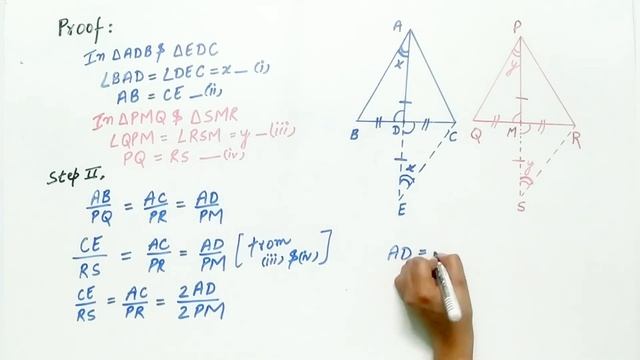 Proof:
In ΔADB $ ΔEDC
∠BAD = ∠DEC = x — (i)
AB = CE — (ii)
In ΔPMQ $ ΔSMR
∠QPM = ∠RSM = y — (iii)
PQ = RS — (iv)
Step II.
AB/PQ = AC/PR = AD/PM
CE/RS = AC/PR = AD/PM [from (iii) $ (iv)]
CE/RS = AC/PR = 2AD/2PM
A
x
B
D
C
x
E
P
y
Q
M
R
y
S
AD =